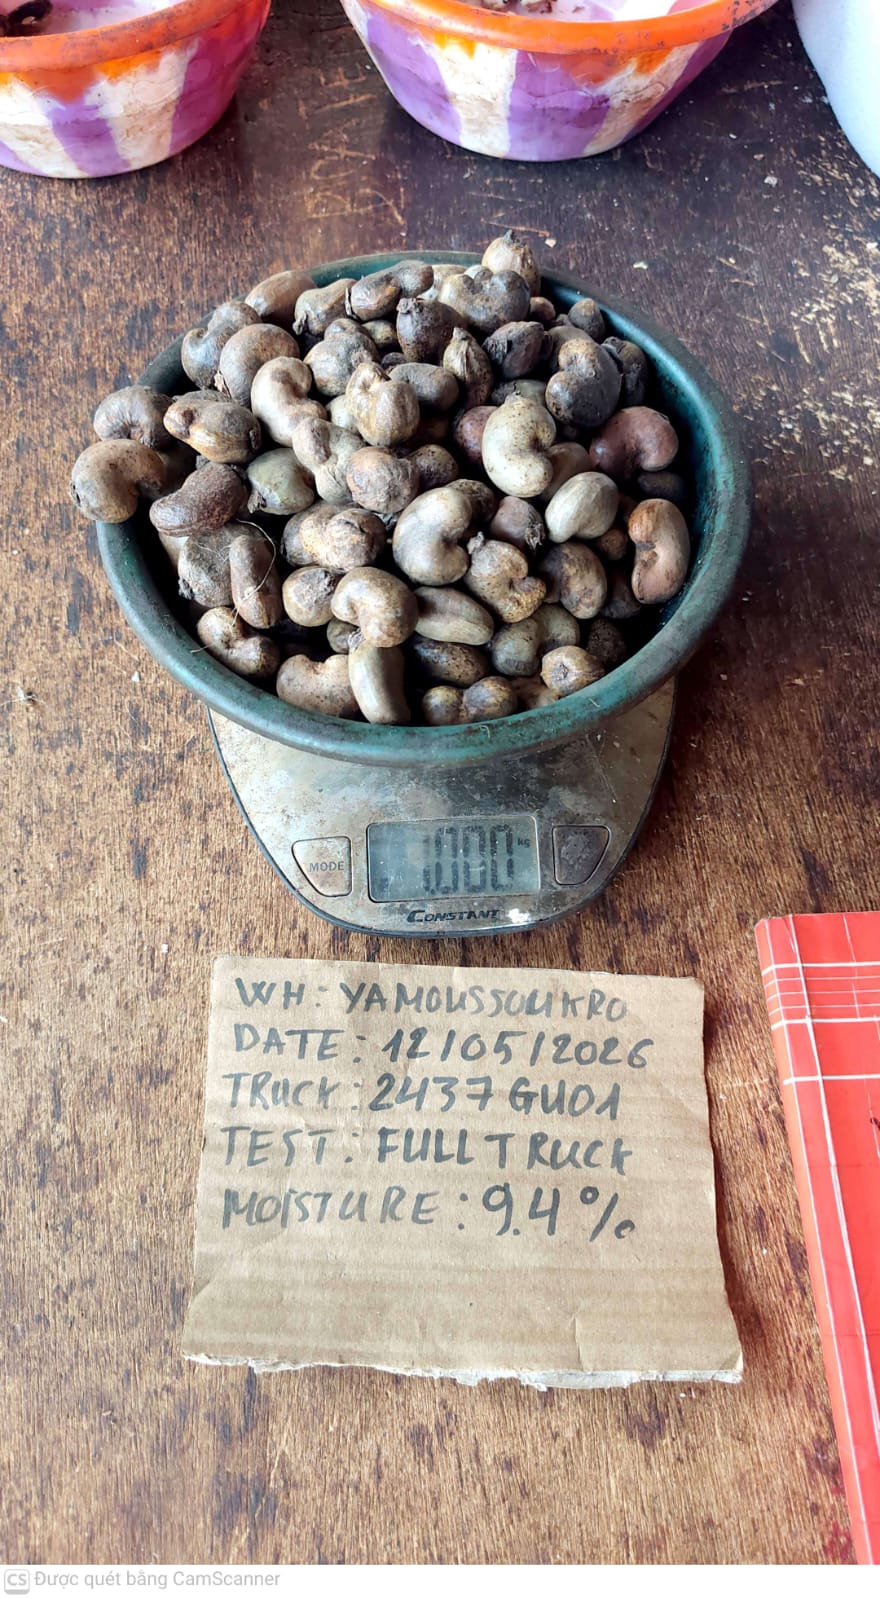 MODE
1.000 kg
CONSTANT
WH: YAMOUSSOUKRO
DATE: 12/05/2026
TRUCK: 2437 GU01
TEST: FULL TRUCK
MOISTURE: 9.4%
CS Được quét bằng CamScanner